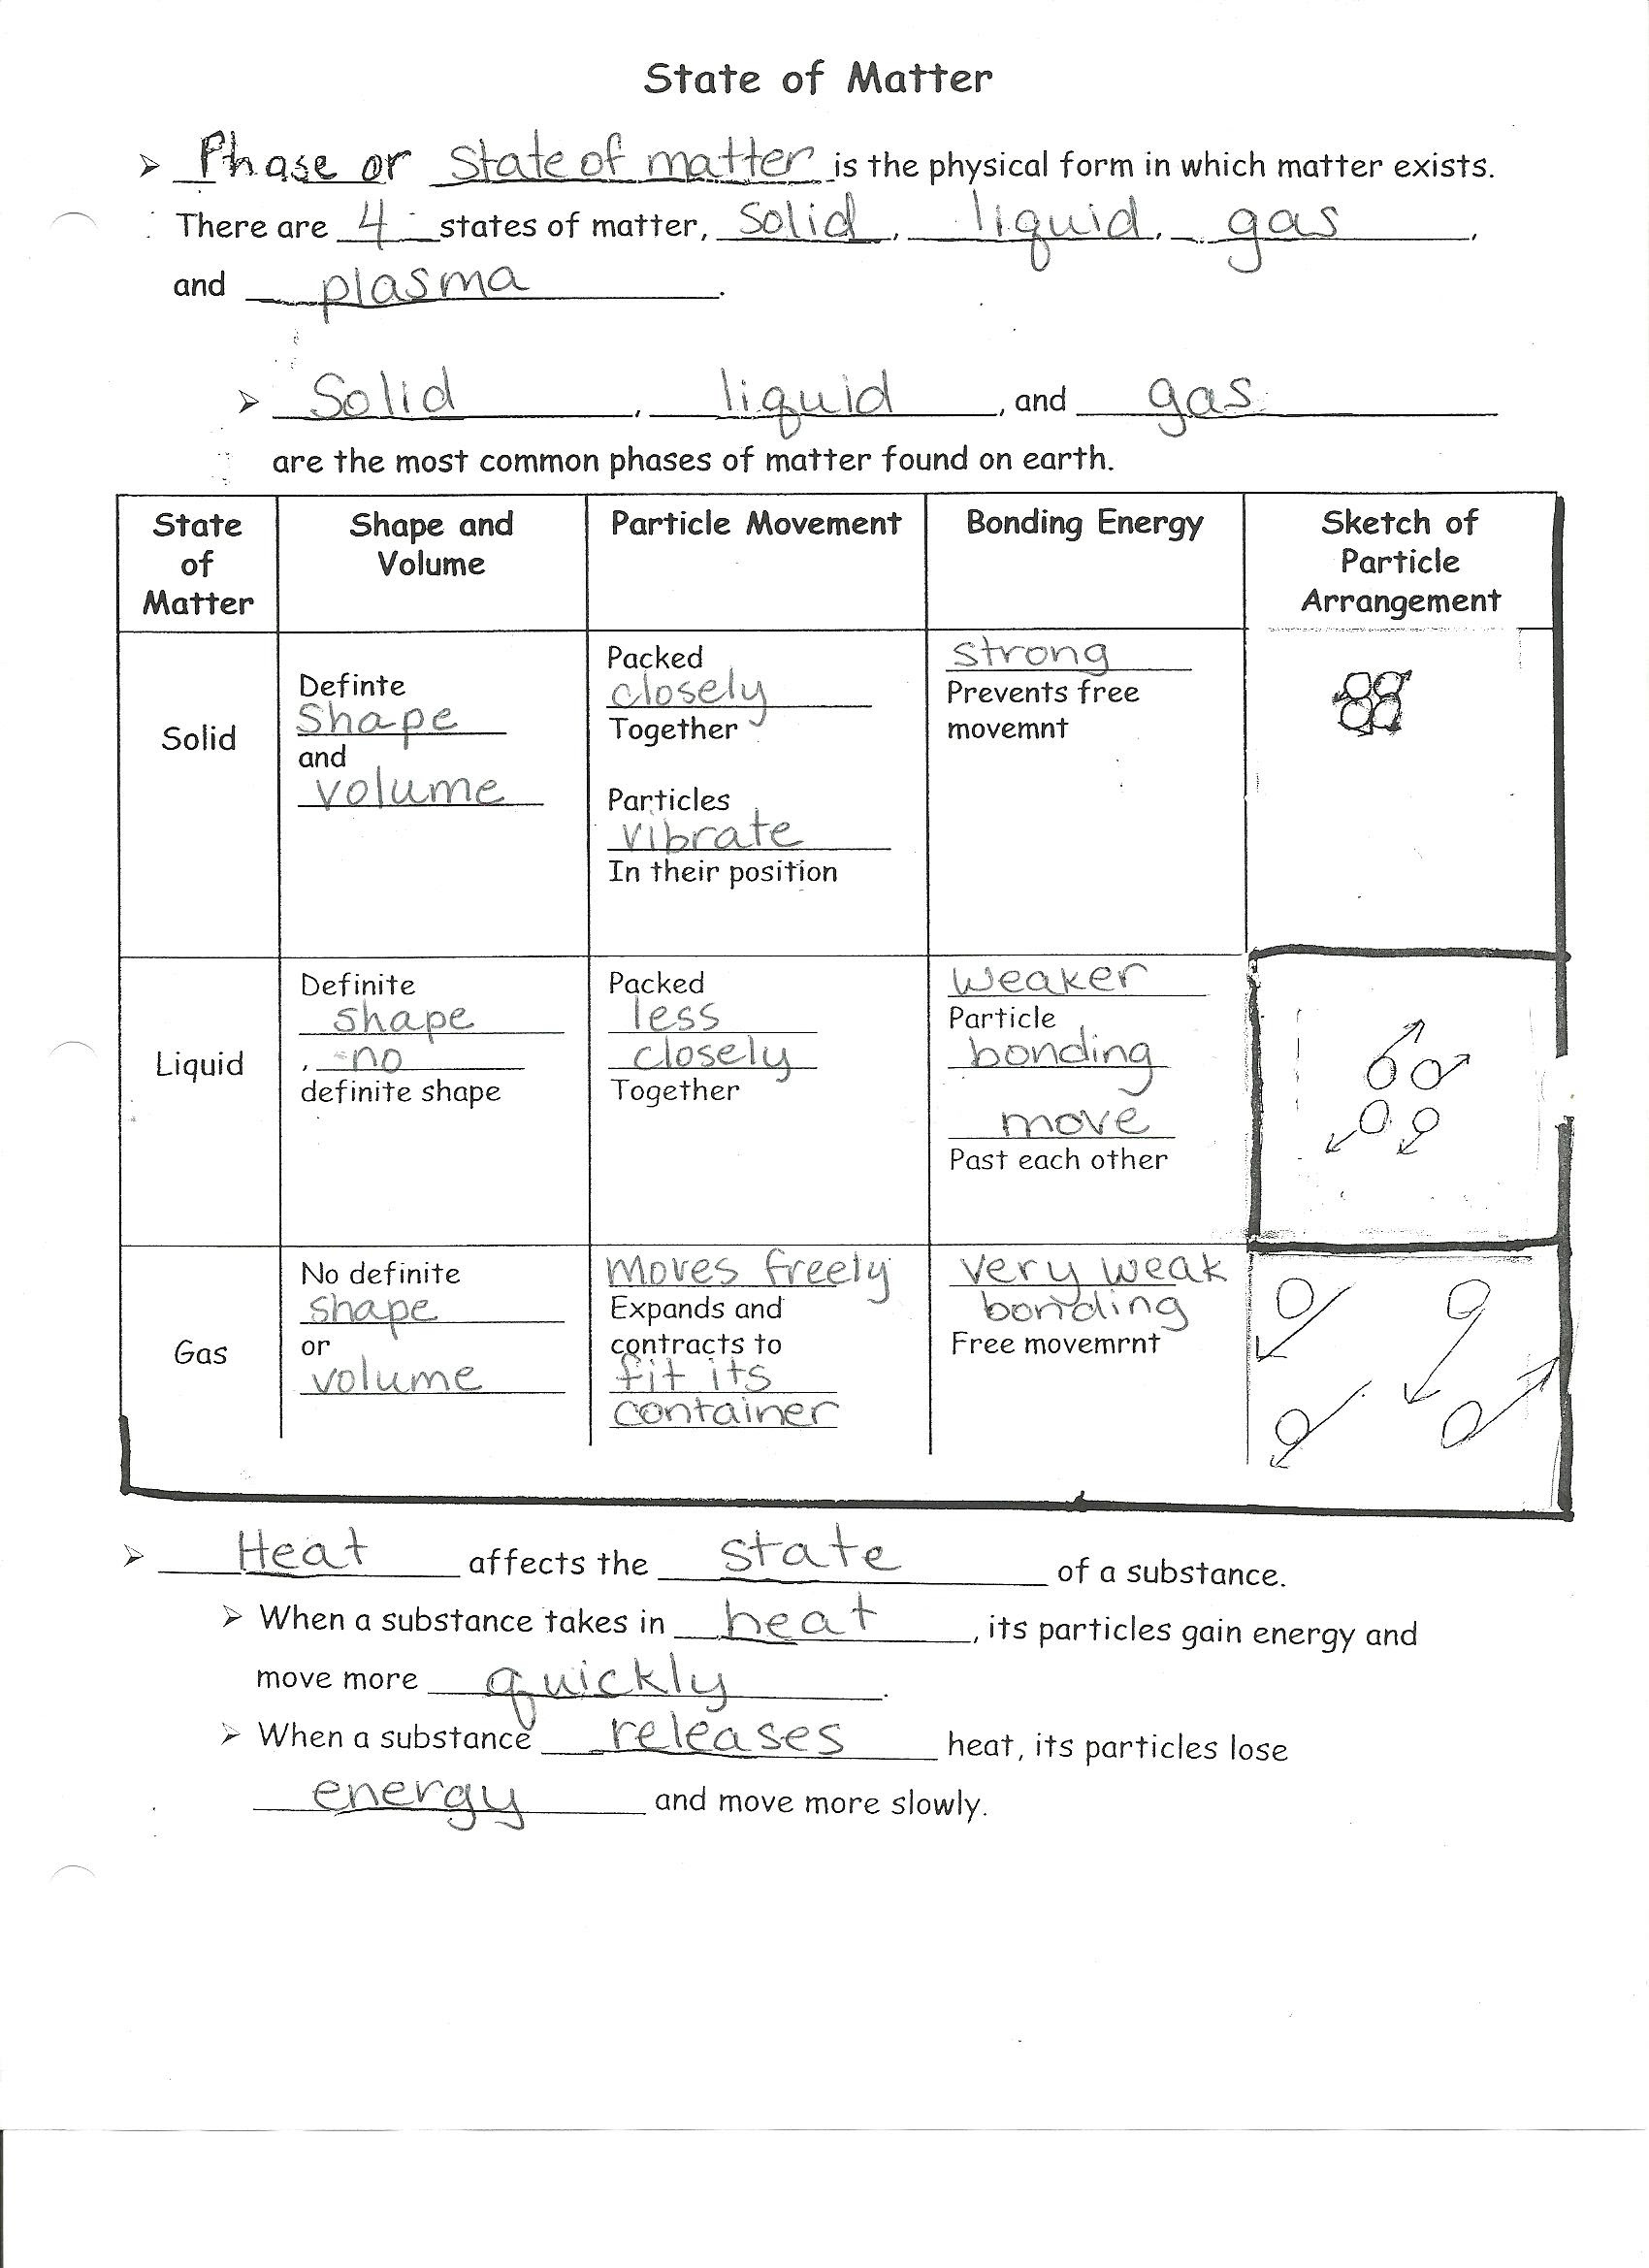 State of Matter
➢ Phase or State of matter is the physical form in which matter exists.
There are 4 states of matter, solid, liquid, gas,
and plasma.
➢ Solid, liquid, and gas
are the most common phases of matter found on earth.
State
of
Matter
Shape and
Volume
Particle Movement
Bonding Energy
Sketch of
Particle
Arrangement
Solid
Definte
Shape
and
volume
Packed
closely
Together
Particles
vibrate
In their position
strong
Prevents free
movemnt
Liquid
Definite
shape
, no
definite shape
Packed
less
closely
Together
weaker
Particle
bonding
move
Past each other
Gas
No definite
shape
or
volume
moves freely
Expands and
contracts to
fit its
container
very weak
bonding
Free movemrnt
➢ Heat affects the state of a substance.
➢ When a substance takes in heat, its particles gain energy and
move more quickly.
➢ When a substance releases heat, its particles lose
energy and move more slowly.